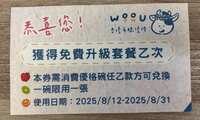 恭喜您！
woou
獲得免費升級套餐乙次
本券需消費優格碗任乙款方可兌換
一碗限用一張
使用日期：2025/8/12-2025/8/31